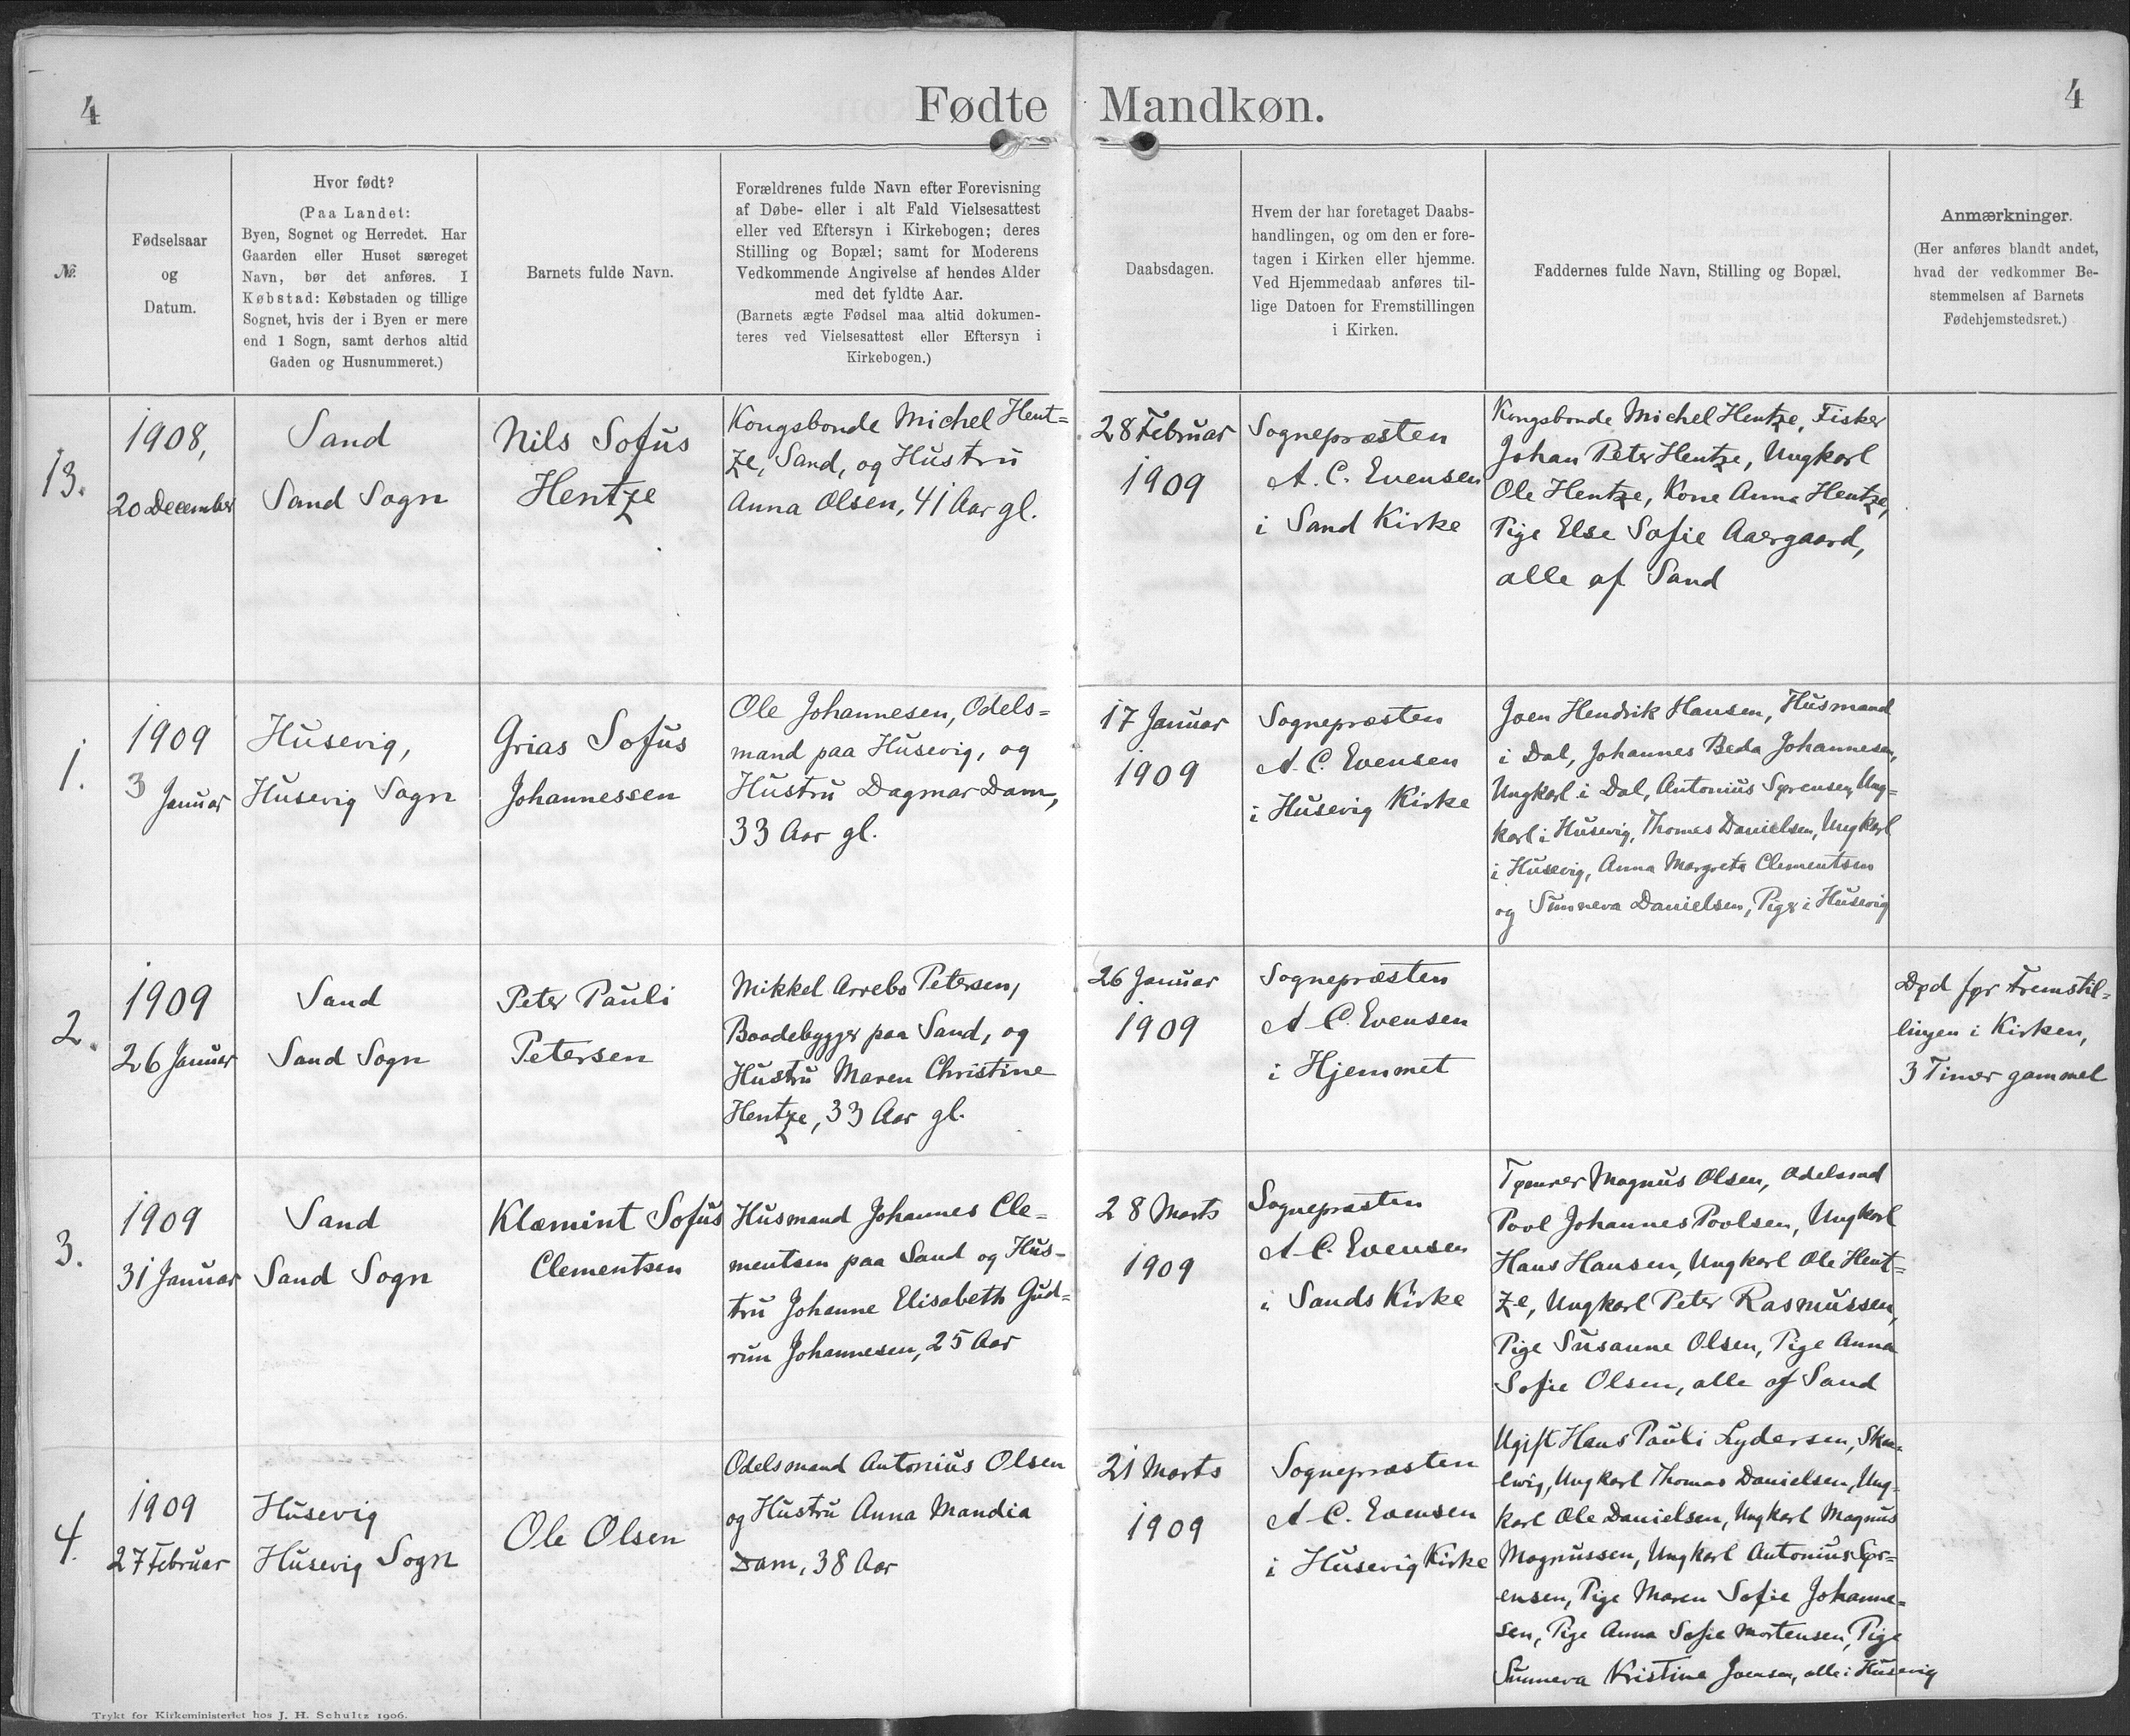 4
Fødte Mandkøn.
4
№
Fødselsaar
og
Datum.
Hvor født?
(Paa Landet:
Byen, Sognet og Herredet. Har
Gaarden eller Huset særeget
Navn, bør det anføres. I
Købstad: Købstaden og tillige
Sognet, hvis der i Byen er mere
end 1 Sogn, samt derhos altid
Gaden og Husnummeret.)
Barnets fulde Navn.
Forældrenes fulde Navn efter Forevisning
af Døbe- eller i alt Fald Vielsesattest
eller ved Eftersyn i Kirkebogen; deres
Stilling og Bopæl; samt for Moderens
Vedkommende Angivelse af hendes Alder
med det fyldte Aar.
(Barnets ægte Fødsel maa altid dokumen-
teres ved Vielsesattest eller Eftersyn i
Kirkebogen.)
Daabsdagen.
Hvem der har foretaget Daabs-
handlingen, og om den er fore-
tagen i Kirken eller hjemme.
Ved Hjemmedaab anføres til-
lige Datoen for Fremstillingen
i Kirken.
Faddernes fulde Navn, Stilling og Bopæl.
Anmærkninger.
(Her anføres blandt andet,
hvad der vedkommer Be-
stemmelsen af Barnets
Fødehjemstedsret.)
13.
1908,
20 December
Sand
Sand Sogn
Nils Sofus
Hentze
Kongsbonde Michel Hent=
ze, Sand, og Hustru
Anna Olsen, 41 Aar gl.
28 Februar
1909
Sognepræsten
A. C. Evensen
i Sand Kirke
Kongsbonde Michel Hentze, Fisker
Johan Peter Hentze, Ungkarl
Ole Hentze, Kone Anna Hentze,
Pige Else Sofie Aaergaard,
alle af Sand
1.
1909
3 Januar
Husevig,
Husevig Sogn
Grias Sofus
Johannessen
Ole Johannesen, Odels=
mand paa Husevig, og
Hustru Dagmar Dam,
33 Aar gl.
17 Januar
1909
Sognepræsten
A. C. Evensen
i Husevig Kirke
Joen Hendrik Hansen, Husmand
i Dal, Johannes Beda Johannesen,
Ungkarl i Dal, Antonius Sørensen, Ung=
karl i Husevig, Thomas Danielsen, Ungkarl
i Husevig, Anna Margreta Clementsen
og Sunneva Danielsen, Piger i Husevig
2.
1909
26 Januar
Sand
Sand Sogn
Peter Pauli
Petersen
Mikkel Arrebo Petersen,
Baadebygger paa Sand, og
Hustru Maren Christine
Hentze, 33 Aar gl.
26 Januar
1909
Sognepræsten
A. C. Evensen
i Hjemmet
Død før Fremstil=
lingen i Kirken,
3 Timer gammel
3.
1909
31 Januar
Sand
Sand Sogn
Klæmint Sofus
Clementsen
Husmand Johannes Cle=
mentsen paa Sand og Hus=
tru Johanne Elisabeth Gud=
run Johannesen, 25 Aar
28 Marts
1909
Sognepræsten
A. C. Evensen
i Sands Kirke
Tømrer Magnus Olsen, Odelsmd
Povl Johannes Povlsen, Ungkarl
Hans Hansen, Ungkarl Ole Hent=
ze, Ungkarl Peter Rasmussen,
Pige Susanne Olsen, Pige Anna
Sofie Olsen, alle af Sand
4.
1909
27 Februar
Husevig
Husevig Sogn
Ole Olsen
Odelsmand Antonius Olsen
og Hustru Anna Mandia
Dam, 38 Aar
21 Marts
1909
Sognepræsten
A. C. Evensen
i Husevig Kirke
Ugift Hans Pauli Lydersen, Skaa-
levig, Ungkarl Thomas Danielsen, Ung-
karl Ole Danielsen, Ungkarl Magnus
Magnussen, Ungkarl Antonius Sør=
ensen, Pige Maren Sofie Johanne=
sen, Pige Anna Sofie Mortensen, Pige
Sunneva Kristine Joensen, alle i Husevig
Trykt for Kirkeministeriet hos J. H. Schultz 1906.